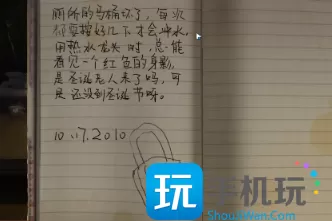 厕所的马桶坏了，每次
都要按好几下才会冲水，
用热水龙头时，总能
看见一个红色的身影，
是圣诞老人来了吗，可
是还没到圣诞节呀。
10.17.2010
玩 手机玩
ShoujiWan.Com